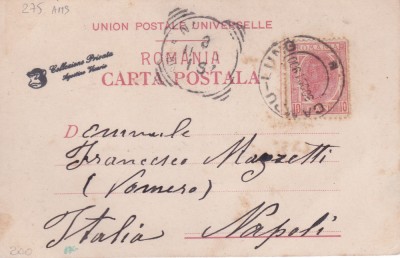 275 A113
UNION POSTALE UNIVERSELLE
ROMÂNIA
CARTA POSTALA
Collezione Privata
CAMPU-LUNG
10 10
D
Francesco Mazzetti
(Vomero)
Italia Napoli
200